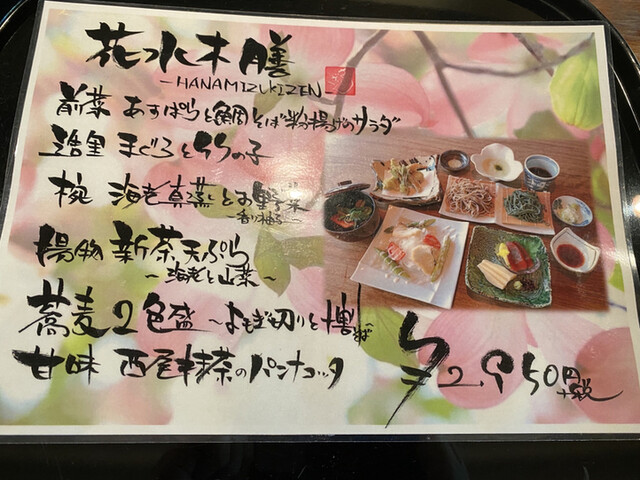 花水木膳
-HANAMIZUKIZEN
前菜 あすぱらと鯛 そば粉揚げのサラダ
造里 まぐろと竹の子
椀 海老真蒸とお野菜
~香り柚子~
揚物 新茶天ぷら
~海老と山菜~
蕎麦2色盛 ~よもぎ切りと十割そば
甘味 西尾抹茶のパンナコッタ
2,950円
+税